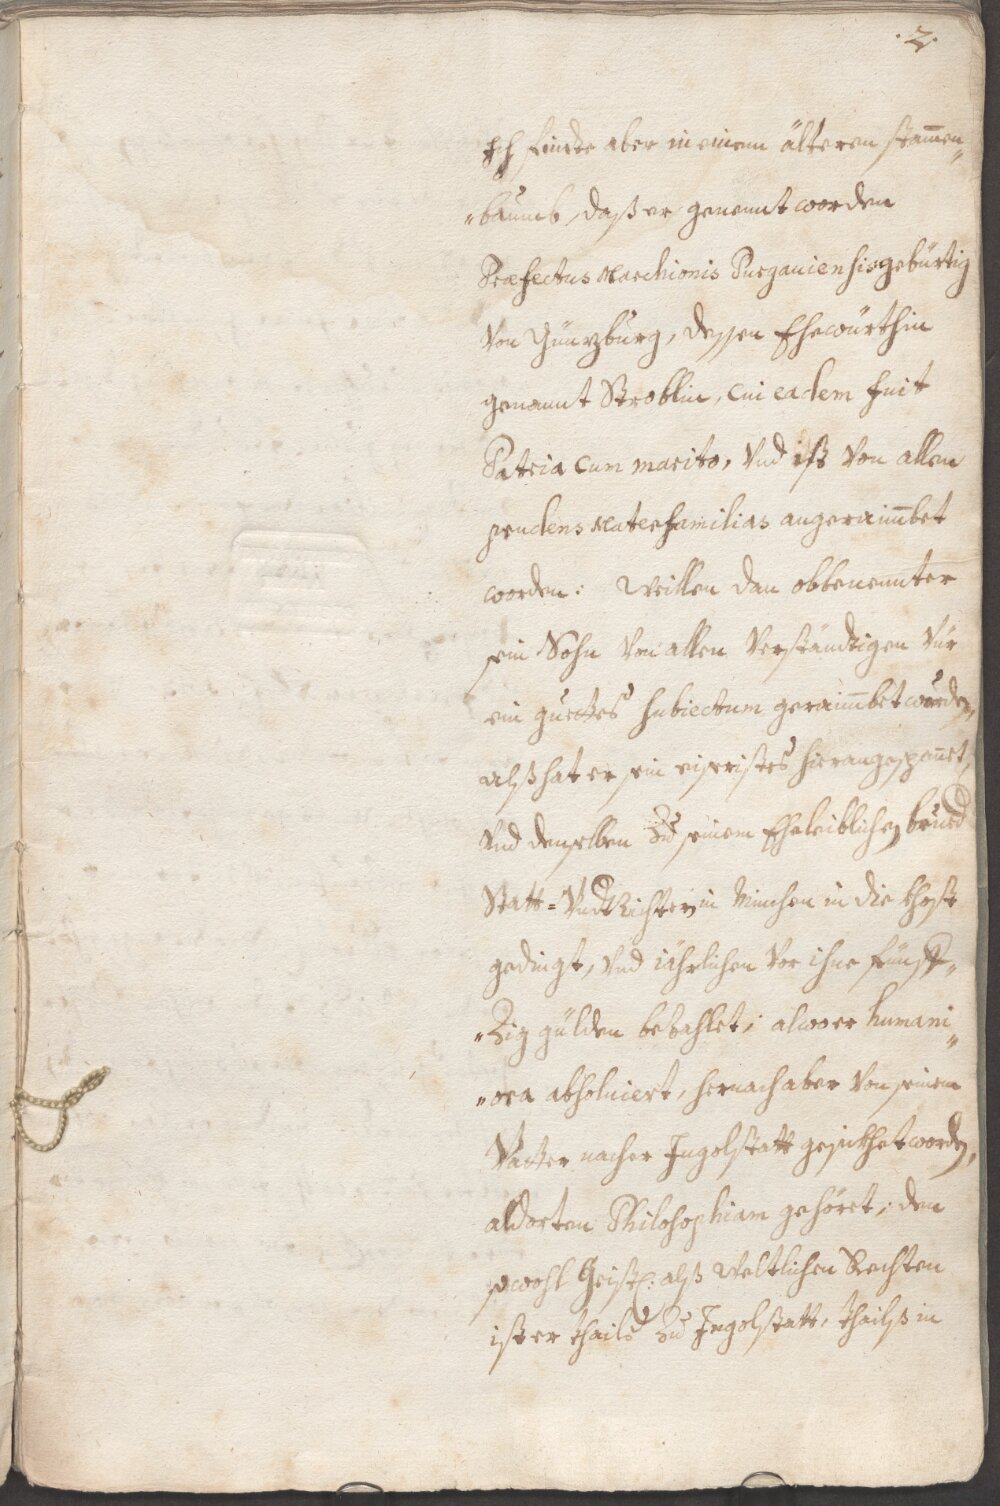 ·2·
Ich finde aber in einem älteren stam̄en„
„baumb, daß er genennt worden
Præfectus Marchionis Purgauiensis gebürtig
Von Günzburg, dessen Ehewürthin
genannt Stroblin, cui eadem fuit
Patria cum marito, Vnd ist Von allen
prudens Materfamilias angeraim̄bet
worden: Weillen dan obbenennter
sein Sohn Von allen Verständigen Vür
ein guettes subiectum geraim̄bet wurde,
alß hat er sein eiseristes hieran gespan̄et,
Vnd denselben Zu seinem Eheleiblichen brued
Statt=Vndt Richter in München in die khost
gedingt, Vnd iährlichen Vor ihne fünff„
„Zig gulden bebahlet; alwo er humani„
„ora absoluiert, hernach aber Von seinem
Vatter nacher Ingolstatt geschikhet worden,
aldorten Philosophiam gehöret; den
sowohl Geistl: alß Weltlichen Rechten
ist er thails Zu Ingolstatt, thailß in